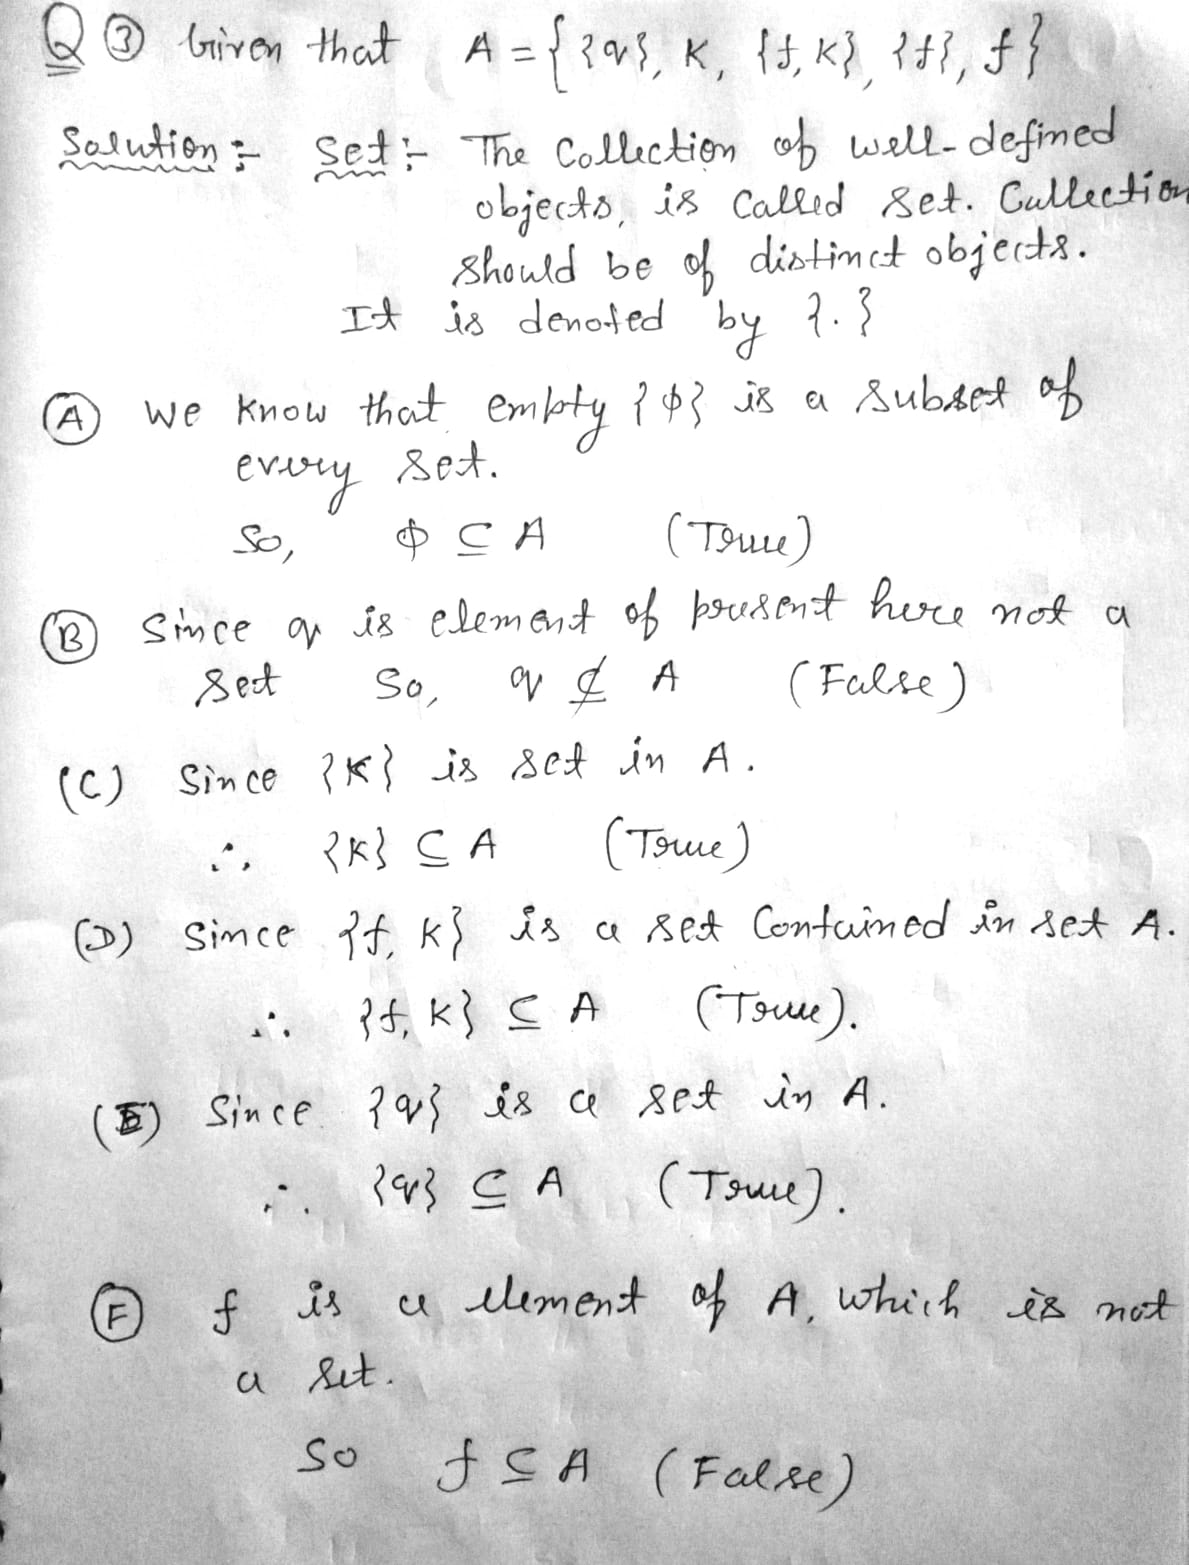 Q ③ Given that A = { {q}, K, {f, K}, {f}, f }
Solution :- Set :- The Collection of well-defined
objects, is Called Set. Cullection
should be of distinct objects.
It is denoted by {.}
Ⓐ We know that empty {ϕ} is a subset of
every set.
So, ϕ ⊆ A (True)
Ⓑ Since q is element of present here not a
set So, q ⊈ A (False)
(C) Since {K} is set in A.
∴ {K} ⊆ A (True)
(D) Since {f, K} is a set Contained in set A.
∴ {f, K} ⊆ A (True).
(E) Since {q} is a set in A.
∴ {q} ⊆ A (True).
Ⓕ f is a element of A, which is not
a set.
So f ⊆ A (False)